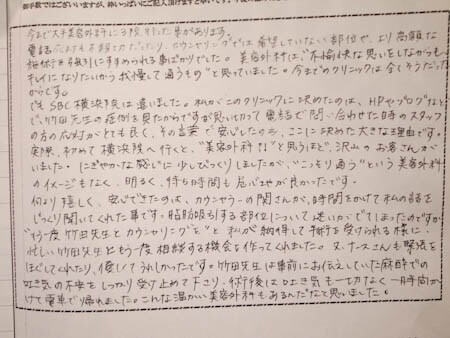 お手数ではございますが、枠いっぱいにご記入頂けますと幸いです。
今まで大手美容外科に3院行った事があります。
電話応対も不親切だったり、カウンセリングでは希望していない部位や、より高額な
施術を強引にすすめられる事ばかりでした。美容外科は、"不愉快な思いをしながらも
キレイになりたいから我慢して通うもの"と思っていました。今までのクリニックは全てそうだった
からです。
でもSBC横浜院は違いました。私がこのクリニックに決めたのは、HPやブログなど
で、竹田先生の症例を見たからですが思い切って電話で問い合わせた時のスタッフ
の方の応対がとても良く、その言葉で安心したのも、ここに決めた大きな理由です。
実際、初めて横浜院へ行くと、"美容外科なの?"と思うほど、沢山のお客さんが
いました。にぎやかな感じに少しびっくりしましたが、"こっそり通う"という美容外科
のイメージもなく、明るく、待ち時間も居心地が良かったです。
何より嬉しく、安心できたのは、カウンセラーの関さんが、時間をかけて私の話を
じっくり聞いてくれた事です。脂肪吸引する部位について迷いがでてしまったのですが
"もう一度竹田先生とカウンセリングを"と私が納得して手術を受けられる様に、
忙しい竹田先生ともう一度相談する機会を作ってくれました。又、ナースさんも緊張を
ほぐしてくれたり、優しくてうれしかったです。竹田先生は事前にお伝えしていた麻酔での
吐き気の不安をしっかり受け止めて下さり、術後は吐き気も一切なく一時間か
けて電車で帰れました。こんな温かい美容外科もあるんだなと思いました。